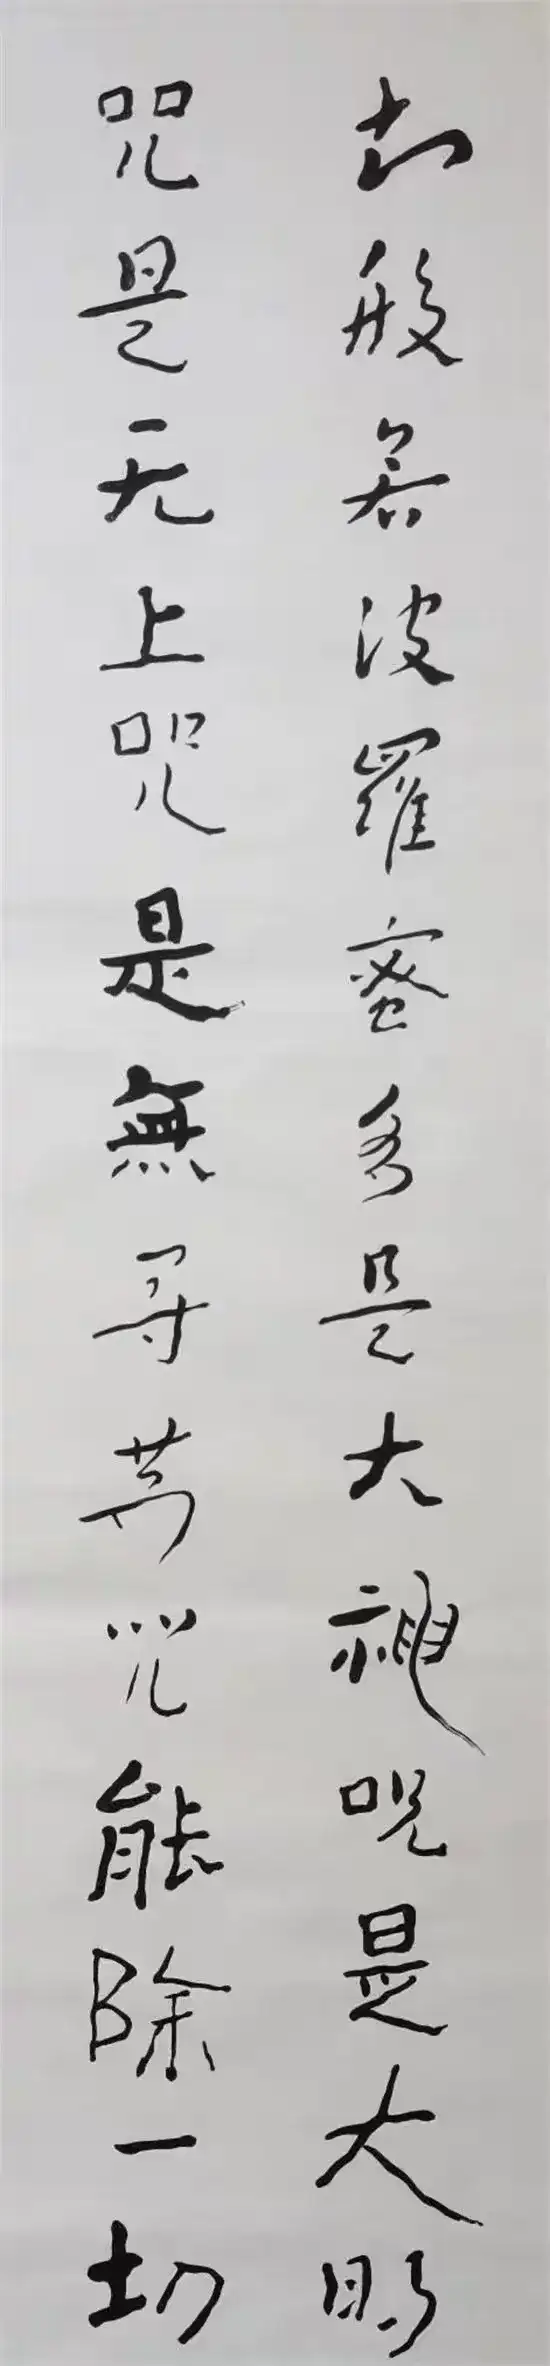 知般若波羅蜜多是大神呪是大明
咒是无上咒是無等等咒能除一切